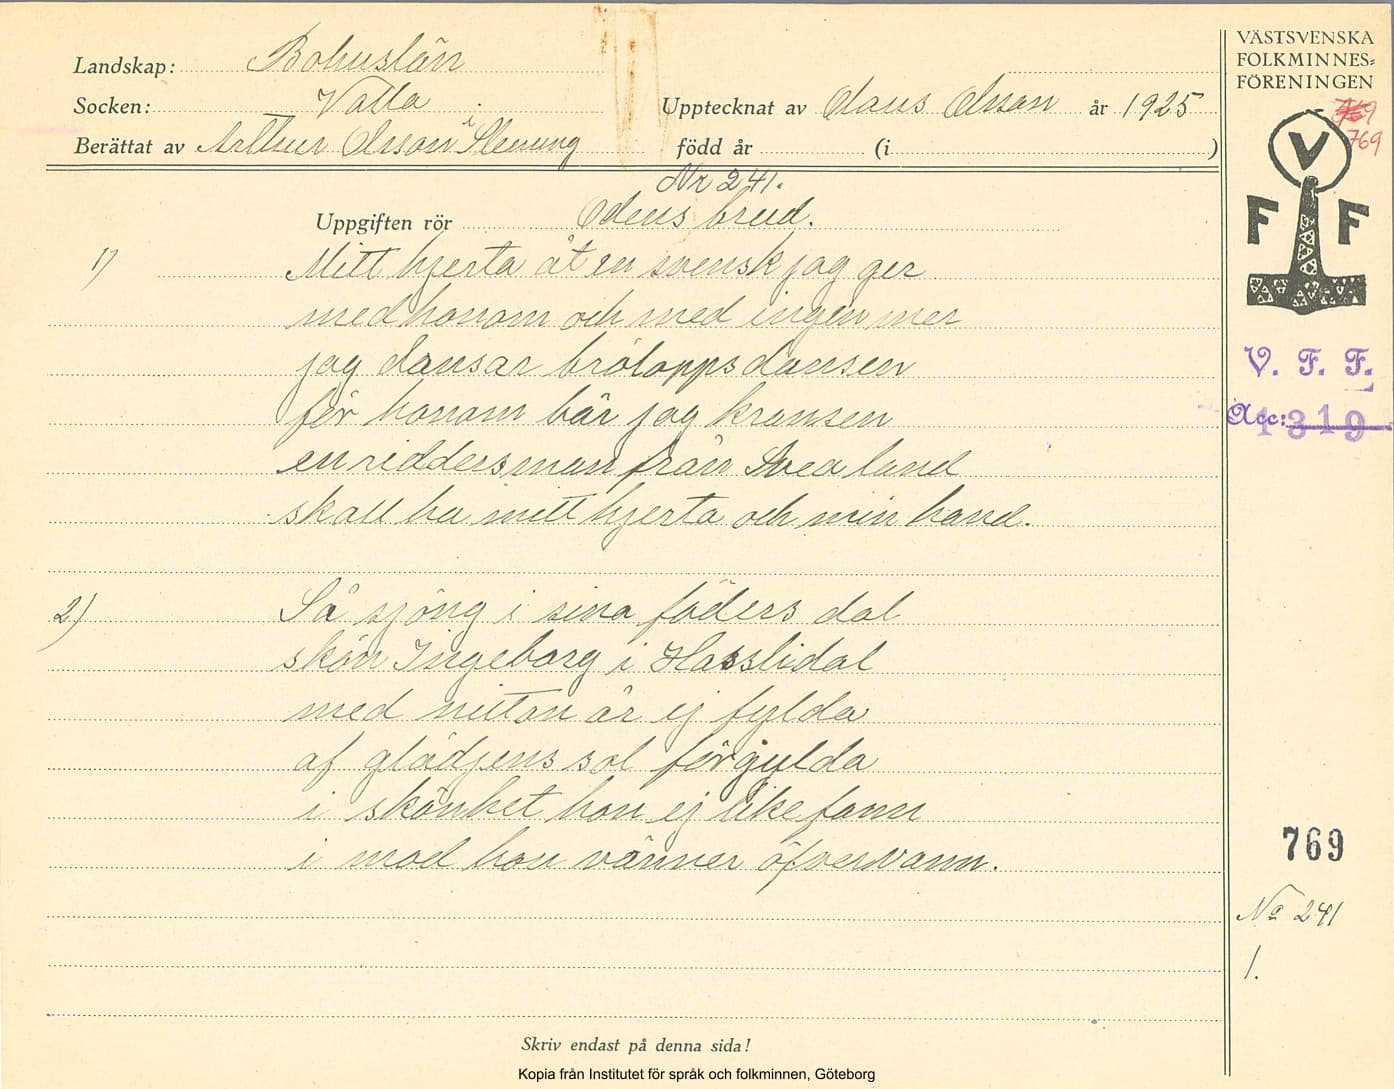 Landskap: Bohuslän
Socken: Valla
Berättat av Arthur Olsson i Slenung
Upptecknat av Olaus Olsson år 1925
född år (i )
Nr 241.
Uppgiften rör Odens brud.
1) Mitt hjerta åt en svensk jag ger
med honom och med ingen mer
jag dansar brölopps dansen
för honom bär jag kransen
en riddersman från Svea land
skall ha mitt hjerta och min hand.
2) Så sjöng i sina fäders dal
skön Ingeborg i Hasslidal
med nitton år ej fylda
af glädjens sol förgylda
i skönhet hon ej like fann
i mod hon vänner öfvervann.
Skriv endast på denna sida!
Kopia från Institutet för språk och folkminnen, Göteborg
VÄSTSVENSKA
FOLKMINNES-
FÖRENINGEN
769
769
V
F F
V. F. F.
Acc: 1319
769
No 241
1.